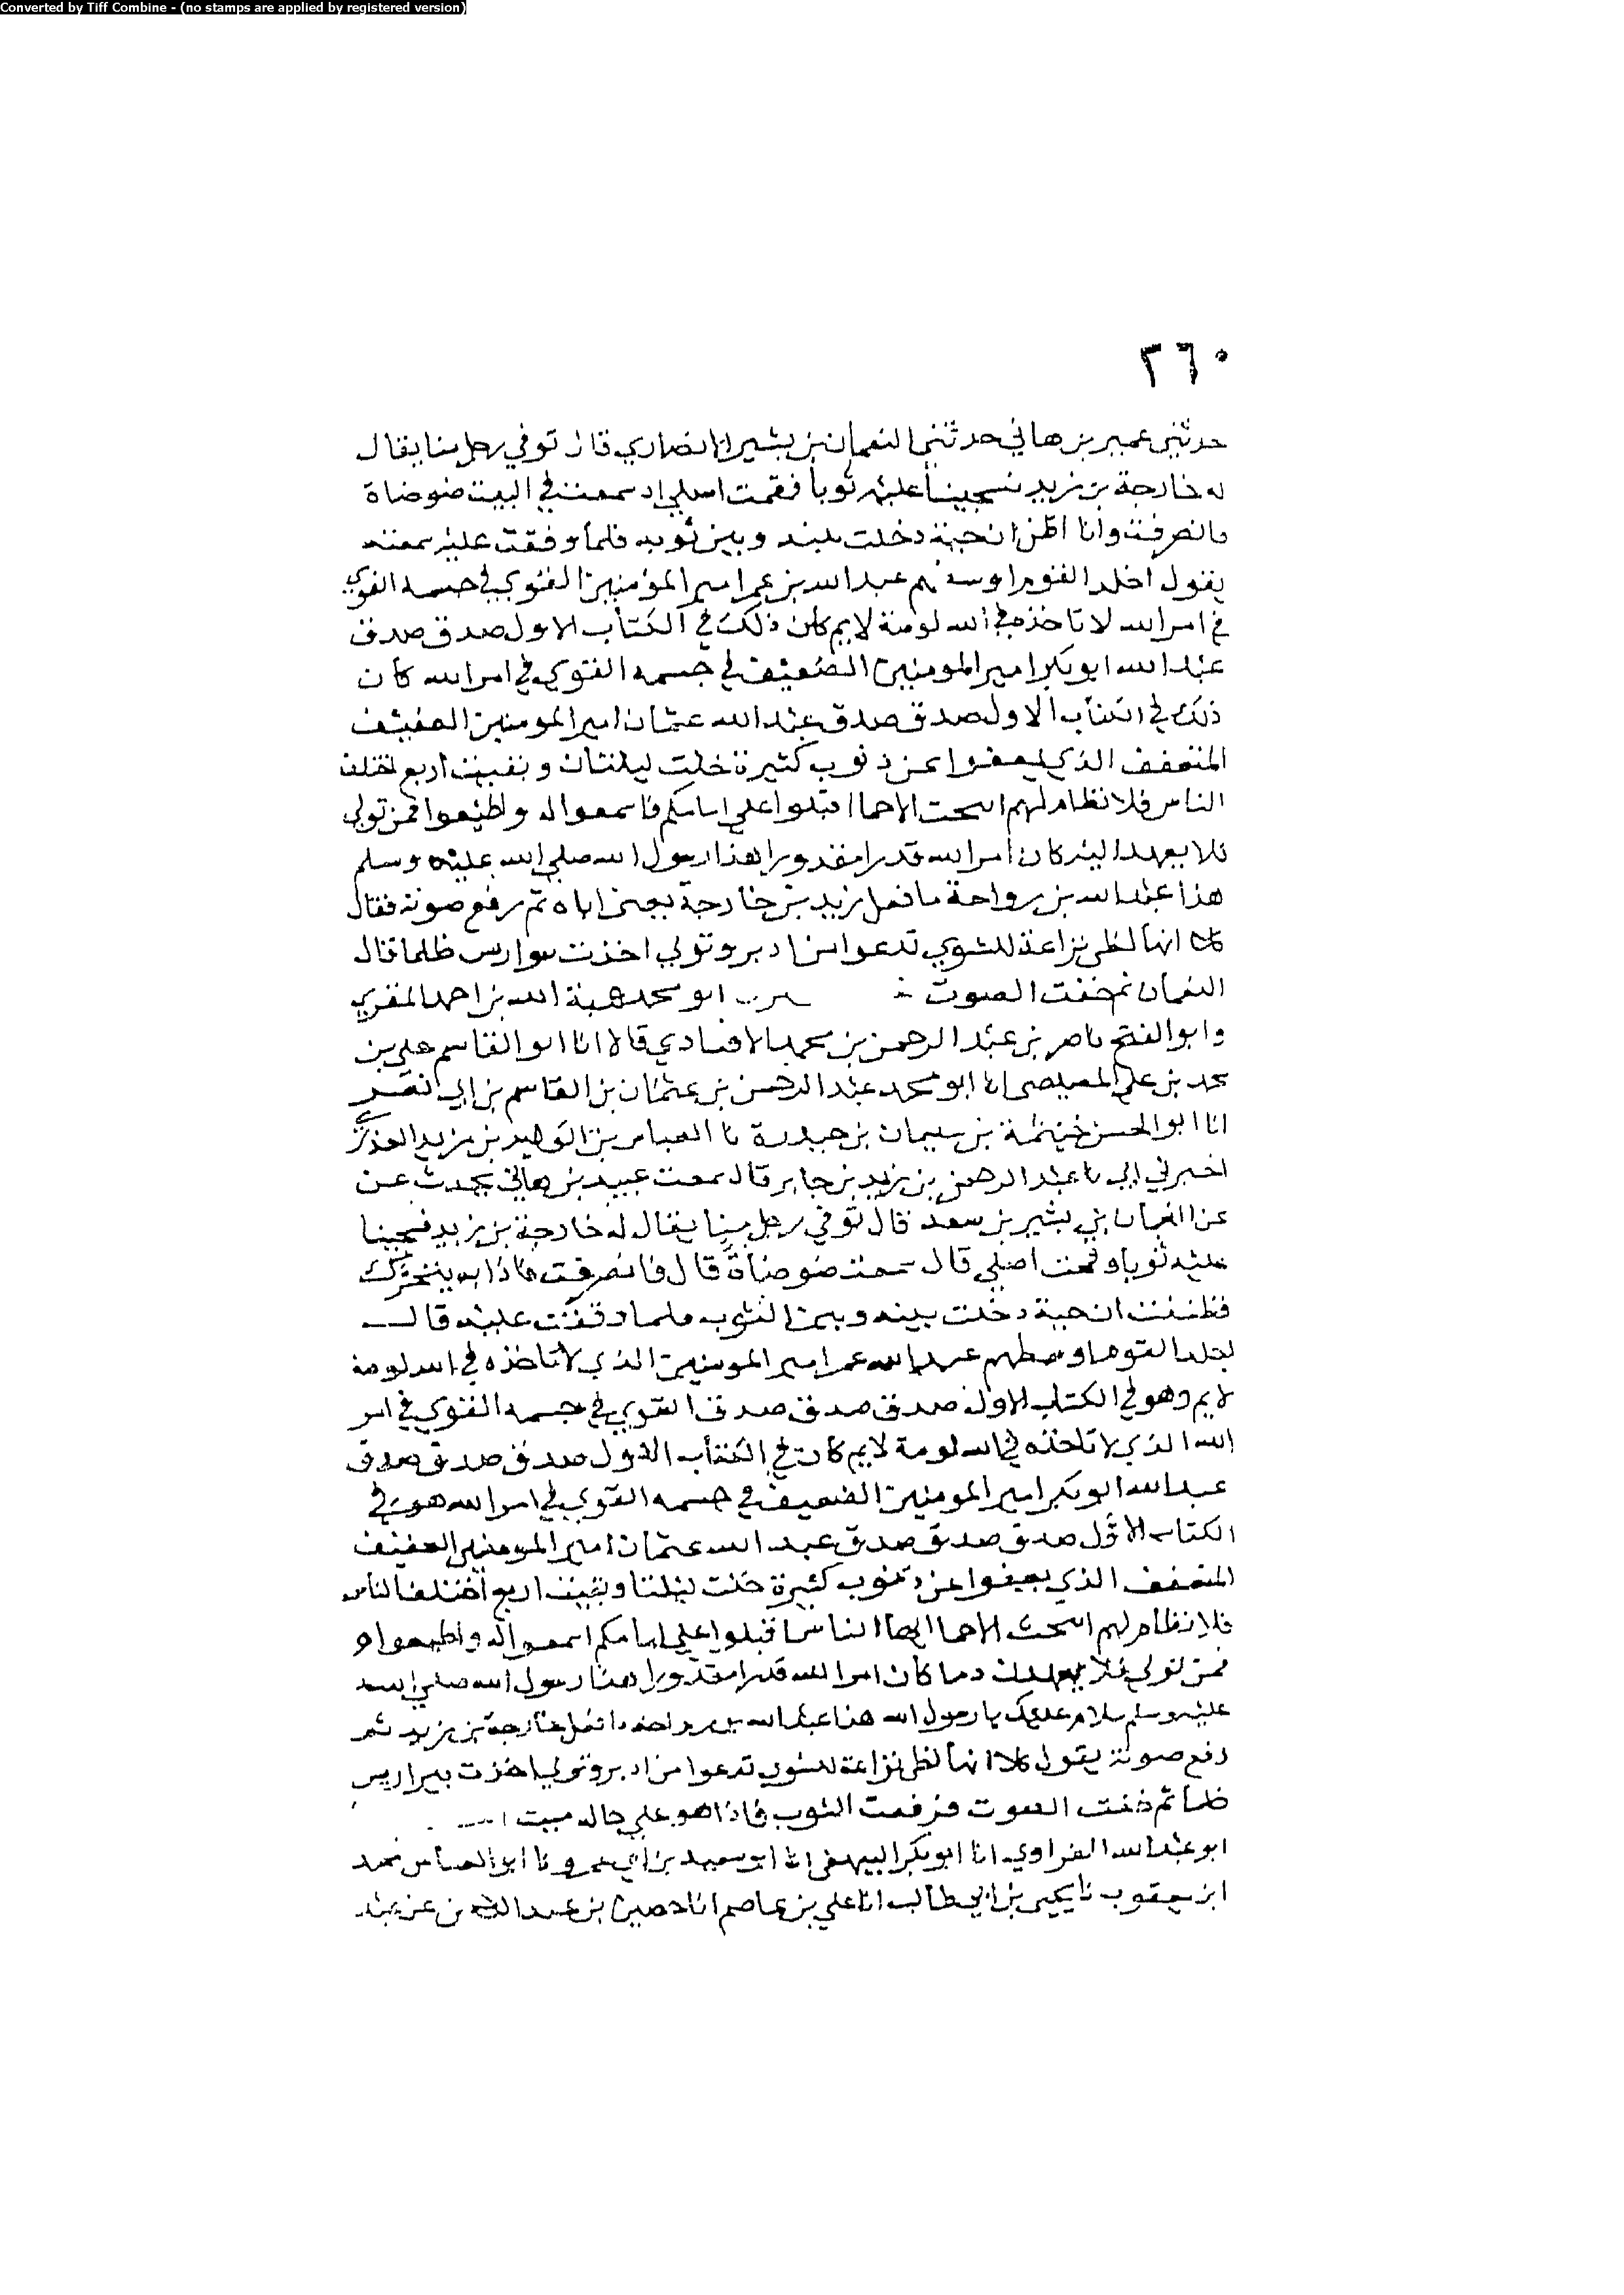 Converted by Tiff Combine - (no stamps are applied by registered version)
٢٦٠
حدثني عمير بن هاني حدثني النعمان بن بشير الانصاري قال توفي رجل منا يقال
له خارجة بن زيد فسجينا عليه ثوبا فقمت اصلي اذ سمعت في البيت ضوضاة
فانصرفت وانا اظن ان حية دخلت بينه وبين ثوبه فلما وقفت عليه سمعته
يقول اجلد القوم اوسطهم عبد الله بن عمر امير المؤمنين القوي في جسمه القوي
في امر الله لا تاخذه في الله لومة لايم كان ذلك في الكتاب الاول صدق صدق
عبد الله ابو بكر امير المومنين الضعيف في جسمه القوي في امر الله كان
ذلك في الكتاب الاول صدق صدق عبد الله عثمان امير المومنين العفيف
المتعفف الذي يعفوا عن ذنوب كثيرة خلت ليلتان وبقيت اربع اختلف
الناس فلا نظام لهم ابيحت الاحما اقبلوا على امامكم فاسمعوا له واطيعوا فمن تولى
فلا يعهد اليه كان امر الله قدرا مقدورا هذا رسول الله صلى الله عليه وسلم
هذا عبد الله بن رواحة ما فعل زيد بن خارجة يعني اباه ثم رفع صوته فقال
كلا انها لظى نزاعة للشوي تدعوا من ادبر وتولي اخذت بيرا ريس ظلما قال
النعمان ثم خفت الصوت ابو محمد هبة الله بن احمد المقري
وابو الفتح ناصر بن عبد الرحمن بن محمد قالا انا ابو القاسم علي بن
محمد بن علي المصيصي انا ابو محمد عبد الرحمن بن عثمان بن القاسم بن ابي نصر
انا ابو الحسن خيثمة بن سيمان بن حيدرة نا العباس بن الوليد بن مزيد العذري
اخبرني ابي نا عبد الرحمن بن يزيد بن جابر قال سمعت عبيد بن هاني يحدث عن
عن النعمان بن بشير بن سعد قال توفي رجل منا يقال له خارجة بن زيد فسجينا
عليه ثوبا وقمت اصلي قال سمعت ضوضاة قال فانصرفت فاذا به يتحرك
فظننت ان حية دخلت بينه وبين الثوب فلما وقفت عليه قال
اجلد القوم اوسطهم عبد الله عمر امير المومنين الذي لا تاخذه في الله لومة
لايم وهو في الكتاب الاول صدق صدق صدق القوي في جسمه القوي في امر
الله الذي لا تاخذه في الله لومة لايم كان في الكتاب الاول صدق صدق صدق
عبد الله ابو بكر امير المومنين الضعيف في جسمه القوي في امر الله هو في
الكتاب الاول صدق صدق صدق عبد الله عثمان امير المومنين العفيف
المتعفف الذي يعفوا عن ذنوب كثيرة خلت ليلتا وبقيت اربع اختلف الناس
فلا نظام لهم ابيحت الاحما ايها الناس اقبلوا على امامكم اسمعوا له واطيعوا
فمن تولى فلا يعهدن دما كان امر الله قدرا مقدورا هذا رسول الله صلى الله
عليه وسلم سلام عليك يا رسول الله هذا عبد الله بن رواحة ما فعل خارجة بن زيد ثم
رفع صوته يقول كلا انها لظى نزاعة للشوى تدعوا من ادبر وتولى اخذت بيرا ريس
ظلما ثم خفت الصوت فرفعت الثوب فاذا هو على حاله ميت
ابو عبد الله الفراوي انا ابو بكر البيهقي انا ابو سعيد بن ابي عمرو نا ابو العباس محمد
ابن يعقوب نا يحيى بن ابي طالب انا علي بن عاصم انا حصين بن عبد الرحمن عن